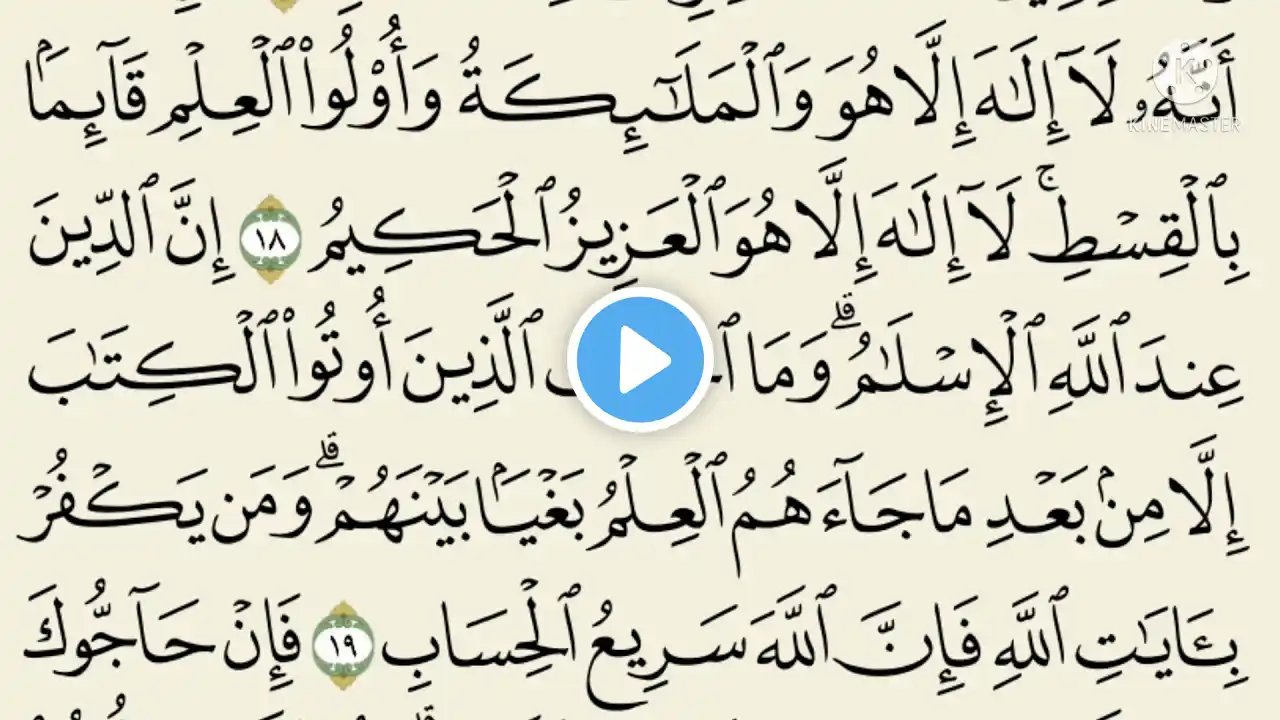 أَنَّهُۥ لَآ إِلَٰهَ إِلَّا هُوَ وَٱلْمَلَٰٓئِكَةُ وَأُو۟لُوا۟ ٱلْعِلْمِ قَآئِمَۢا
بِٱلْقِسْطِۚ لَآ إِلَٰهَ إِلَّا هُوَ ٱلْعَزِيزُ ٱلْحَكِيمُ ١٨ إِنَّ ٱلدِّينَ
عِندَ ٱللَّهِ ٱلْإِسْلَٰمُۗ وَمَا ٱلَّذِينَ أُوتُوا۟ ٱلْكِتَٰبَ
إِلَّا مِنۢ بَعْدِ مَا جَآءَهُمُ ٱلْعِلْمُ بَغْيَۢا بَيْنَهُمْۗ وَمَن يَكْفُرْ
بِـَٔايَٰتِ ٱللَّهِ فَإِنَّ ٱللَّهَ سَرِيعُ ٱلْحِسَابِ ١٩ فَإِنْ حَآجُّوكَ
KINEMASTER